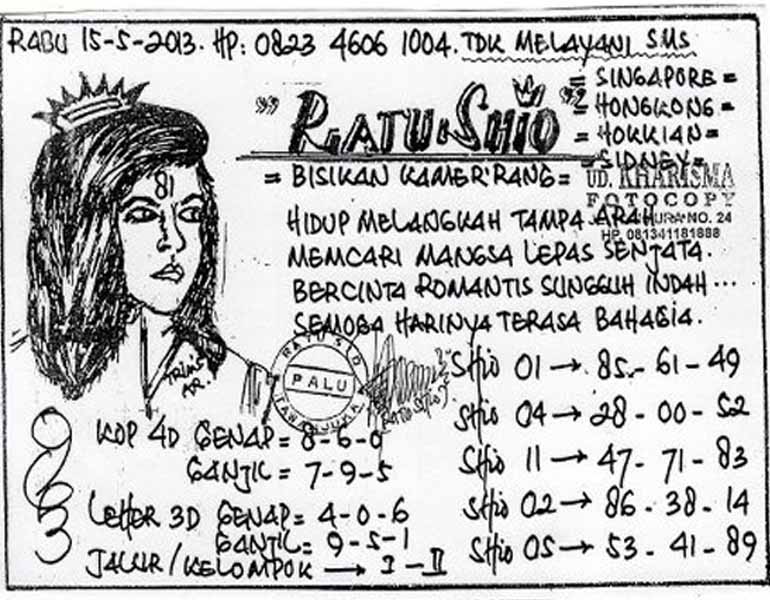 RABU 15-5-2013. HP: 0823 4606 1004. TDK MELAYANI SMS
= SINGAPORE =
= HONGKONG =
= HOKKIAN =
= SIDNEY =
" RATU SHIO "
= BISIKAN KAMER'RANG =
UD. KHARISMA
FOTOCOPY
NO. 24
HP. 081341181888
81
HIDUP MELANGKAH TAMPA ARAH
MEMCARI MANGSA LEPAS SENJATA.
BERCINTA ROMANTIS SUNGGUH INDAH...
SEMOGA HARINYA TERASA BAHAGIA.
TRIMS
AR.
RATU SIO
PALU
SHIO 01 → 85 - 61 - 49
SHIO 04 → 28 - 00 - 52
SHIO 11 → 47 - 71 - 83
SHIO 02 → 86 - 38 - 14
SHIO 05 → 53 - 41 - 89
KOP 4D GENAP = 8-6-0
GANJIL = 7-9-5
LETTER 3D GENAP = 4-0-6
GANJIL = 9-5-1
JALUR / KELOMPOK → I - II